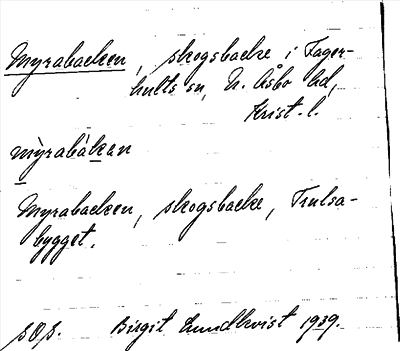 Myrabacken, skogsbacke i Fager-
hults sn, N. Åsbo hd,
Krist. l.
mỳrabàkan
Myrabacken, skogsbacke, Trulsa-
bygget.
Birgit Lundkvist 1939.